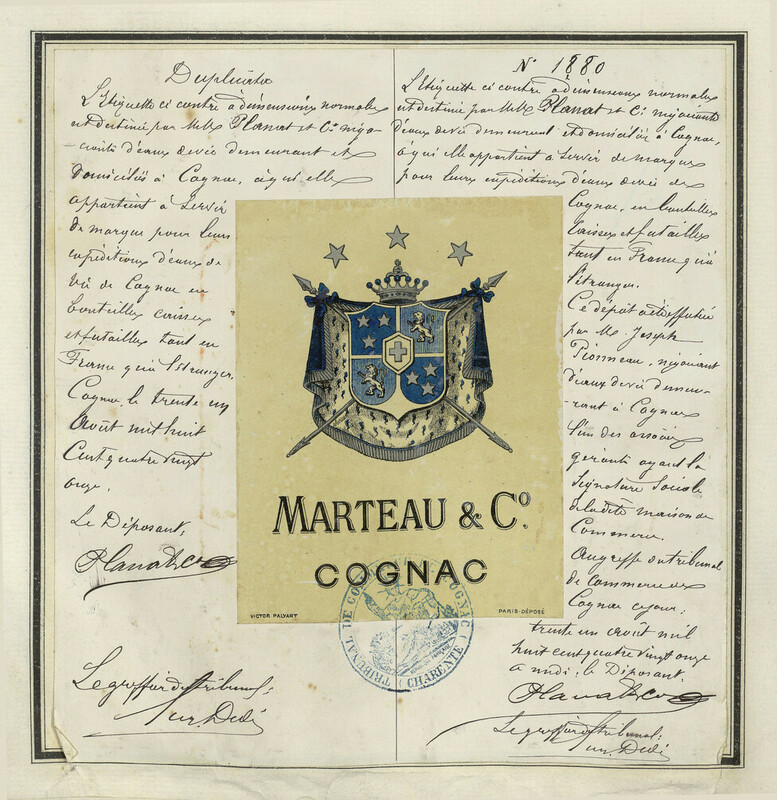 Duplicata
L'Etiquette ci contre à dimensions normales
est destinée par M.M. Planat et Cie négo-
-ciants d'eaux de vie demeurant et
domiciliés à Cognac, à qui elle
appartient à servir
de marque pour leurs
expéditions d'eaux de
vie de Cognac en
bouteilles caisses
et futailles tant en
France qu'à l'étranger.
Cognac le trente un
Août mil huit
Cent quatre vingt
onze.
Le Déposant,
Planat & Co
Le greffier du tribunal:
N° 1880
L'Etiquette ci contre à dimensions normales
est destinée par M.M. Planat et Cie négociants
d'eaux de vie demeurant et domiciliés à Cognac,
à qui elle appartient à servir de marque
pour leurs expéditions d'eaux de vie de
Cognac, en bouteilles
caisses et futailles
tant en France qu'à
l'étranger.
Ce dépôt a été effectué
par M. Joseph
Pionneau, négociant
d'eaux de vie demeu-
-rant à Cognac
l'un des associés
gérants ayant la
Signature Sociale
de la dite maison de
Commerce.
Au greffe du tribunal
de commerce de
Cognac ce jour:
trente un août mil
huit cent quatre vingt onze
à midi, le Déposant.
Planat & Co
Le greffier du tribunal:
MARTEAU & Co.
COGNAC
VICTOR PALYART
PARIS-DÉPOSÉ
TRIBUNAL DE COMMERCE COGNAC (CHARENTE)